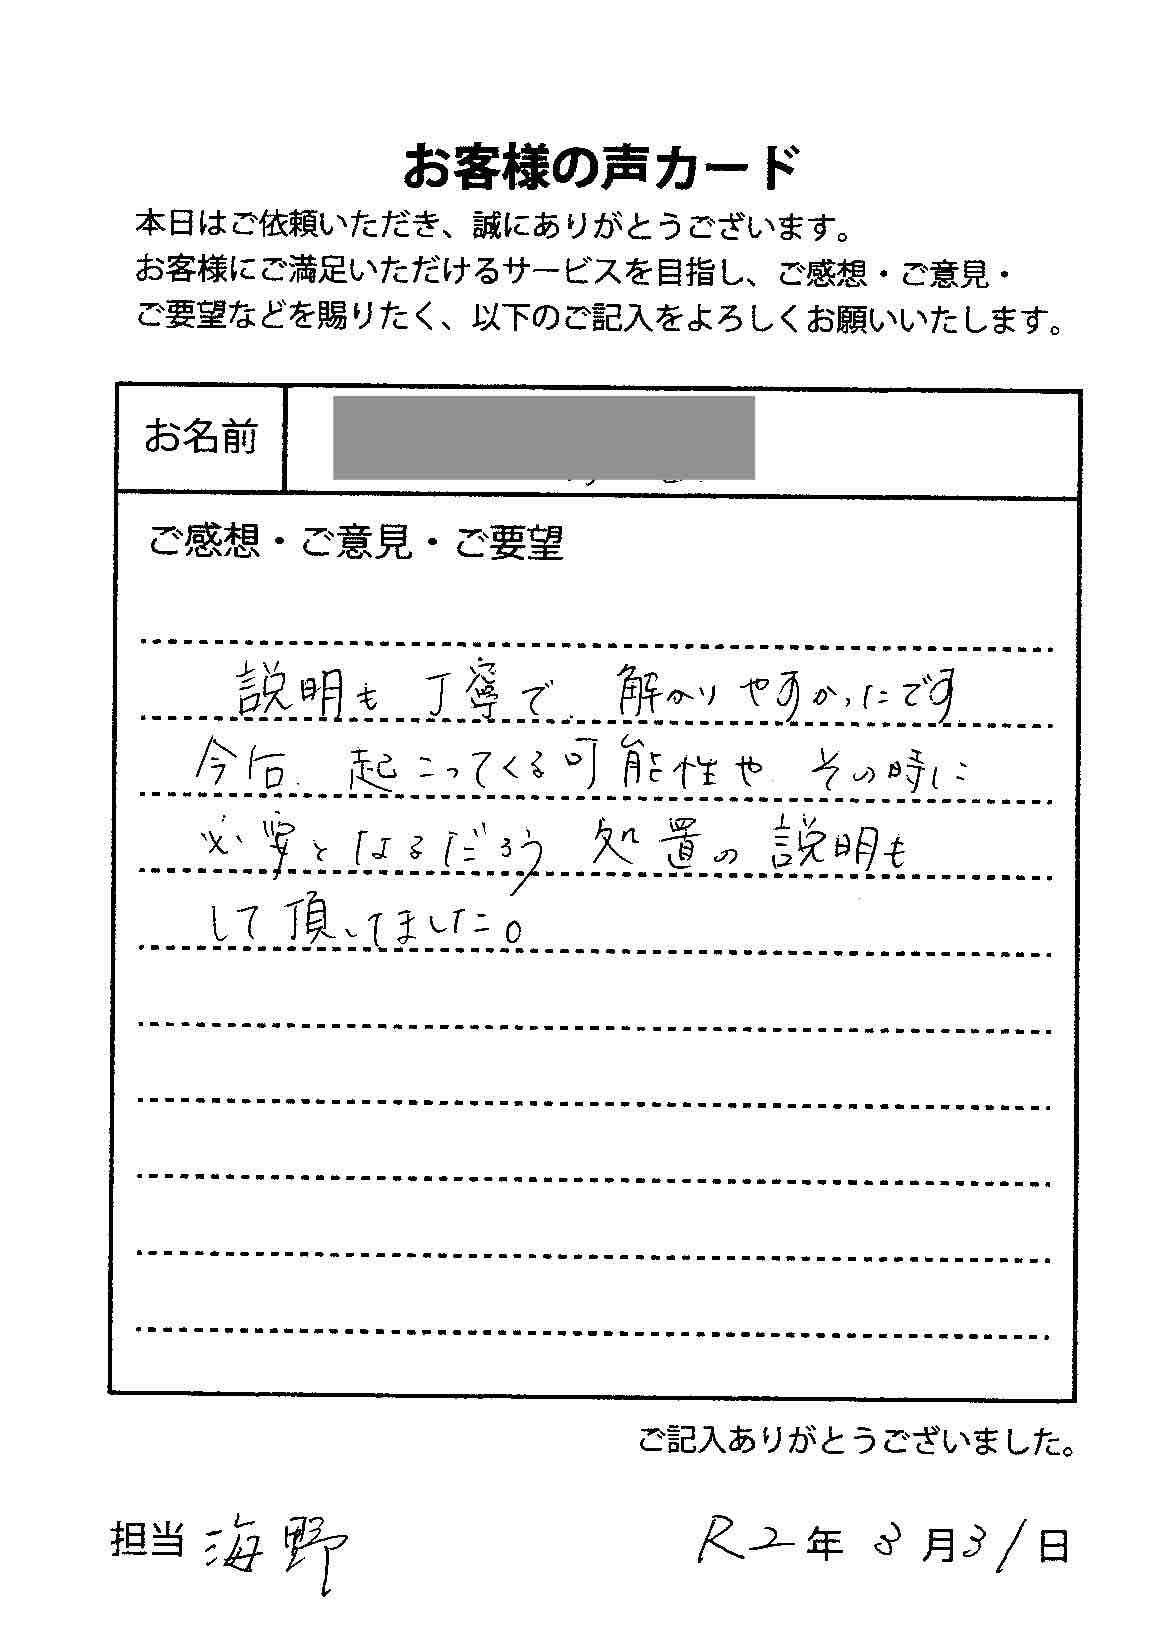 お客様の声カード
本日はご依頼いただき、誠にありがとうございます。
お客様にご満足いただけるサービスを目指し、ご感想・ご意見・
ご要望などを賜りたく、以下のご記入をよろしくお願いいたします。
お名前
ご感想・ご意見・ご要望
説明も丁寧で、解かりやすかったです
今后、起こってくる可能性や その時に
必要となるだろう 処置の説明も
して頂いてました。
ご記入ありがとうございました。
担当 海野 R2年 8月31日